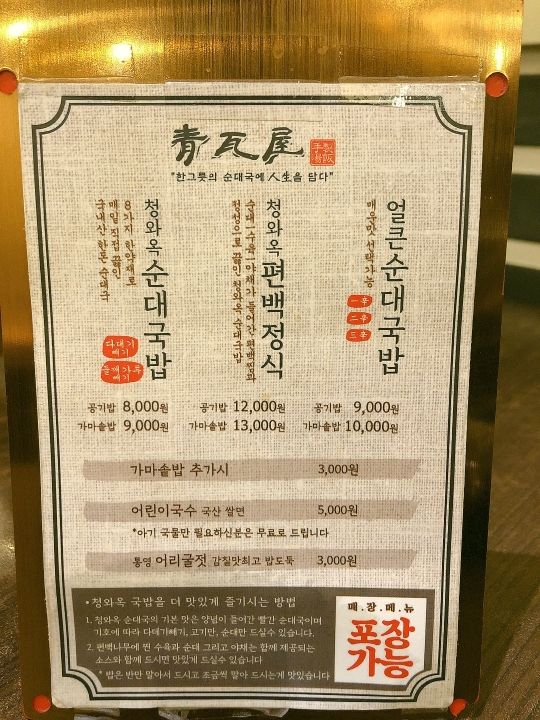 青瓦屋 手製湯飯
"한그릇의 순대국에 人生을 담다"
얼큰순대국밥
매운맛 선택가능
一辛
二辛
三辛
청와옥 편백정식
순대/수육/야채가 들어간 편백찜과
정성으로 끓인 청와옥 순대국밥
청와옥 순대국밥
8가지 한약재로
매일 직접 끓인
국내산 한돈 순대국
다대기
빼기
들깨가루
빼기
공기밥 8,000원
가마솥밥 9,000원
공기밥 12,000원
가마솥밥 13,000원
공기밥 9,000원
가마솥밥 10,000원
가마솥밥 추가시 3,000원
어린이국수 국산 쌀면 5,000원
*아기 국물만 필요하신분은 무료로 드립니다
통영 어리굴젓 감칠맛최고 밥도둑 3,000원
• 청와옥 국밥을 더 맛있게 즐기시는 방법
1. 청와옥 순대국의 기본 맛은 양념이 들어간 빨간 순대국이며
기호에 따라 다대기빼기, 고기만, 순대만 드실수 있습니다.
2. 편백나무에 찐 수육과 순대 그리고 야채는 함께 제공되는
소스와 함께 드시면 맛있게 드실수 있습니다
* 밥은 반만 말아서 드시고 조금씩 말아 드시는게 맛있습니다
매.장.메.뉴
포장
가능